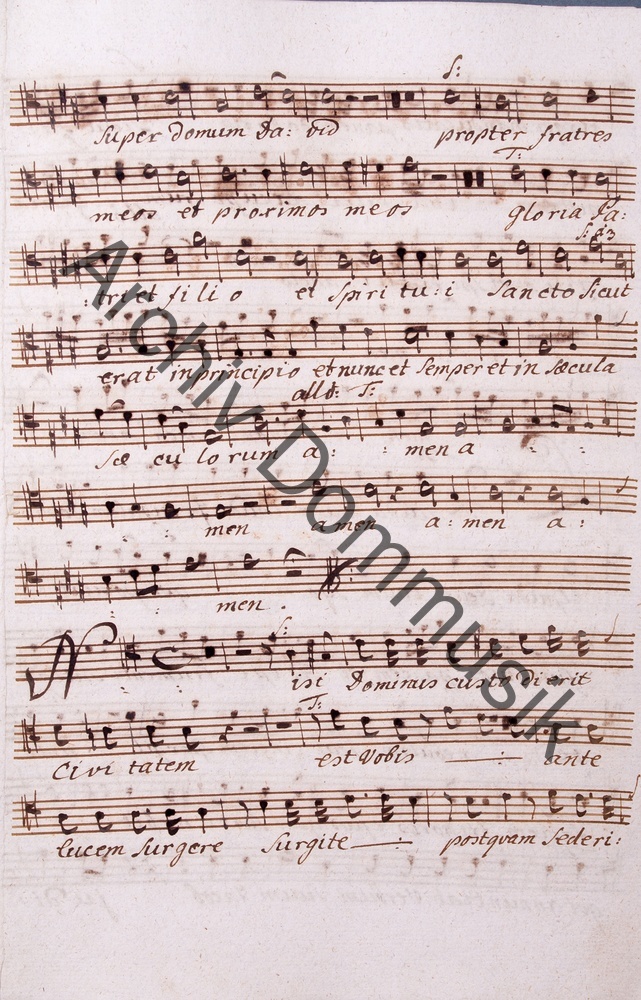 S:
super domum Da: vid propter fratres
T:
meos et proximos meos gloria Pa:
: tri et filio et Spiri tu: i Sancto Sicut
erat in principio et nunc et Semper et in Sæcula
allo: T:
Sæ cu lo rum a : : men a : :
: : men amen a: men a :
: : men .
S:
Nisi Dominus custo di erit
T:
Civi tatem est Vobis — : ante
lucem Surgere Surgite — : postquam Sederi:
Archiv Dommusik